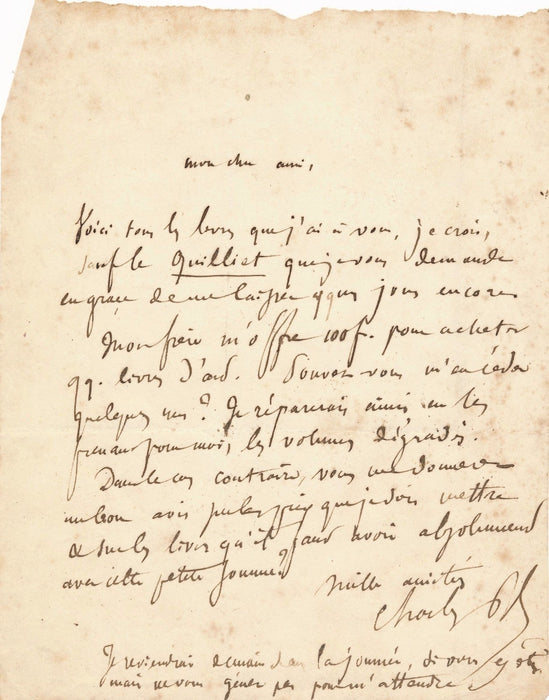 mon cher ami,
Voici tous les livres que j'ai à vous, je crois,
sauf le Quilliet que je vous demande
en grâce de me laisser qques jours encore
Mon frère m'offre 100f. pour acheter
qq. livres d'art. Pouvez-vous m'en céder
quelques uns? Je réparerais ainsi en les
prenant pour moi, les volumes dégradés.
Dans le cas contraire, vous me donnerez
un bon avis sur les prix que je dois mettre
& sur les livres qu'il faut avoir absolument
avec cette petite somme?
mille amitiés
Je reviendrai demain dans la journée, si vous y êtes
mais ne vous gênez pas pour m'attendre.